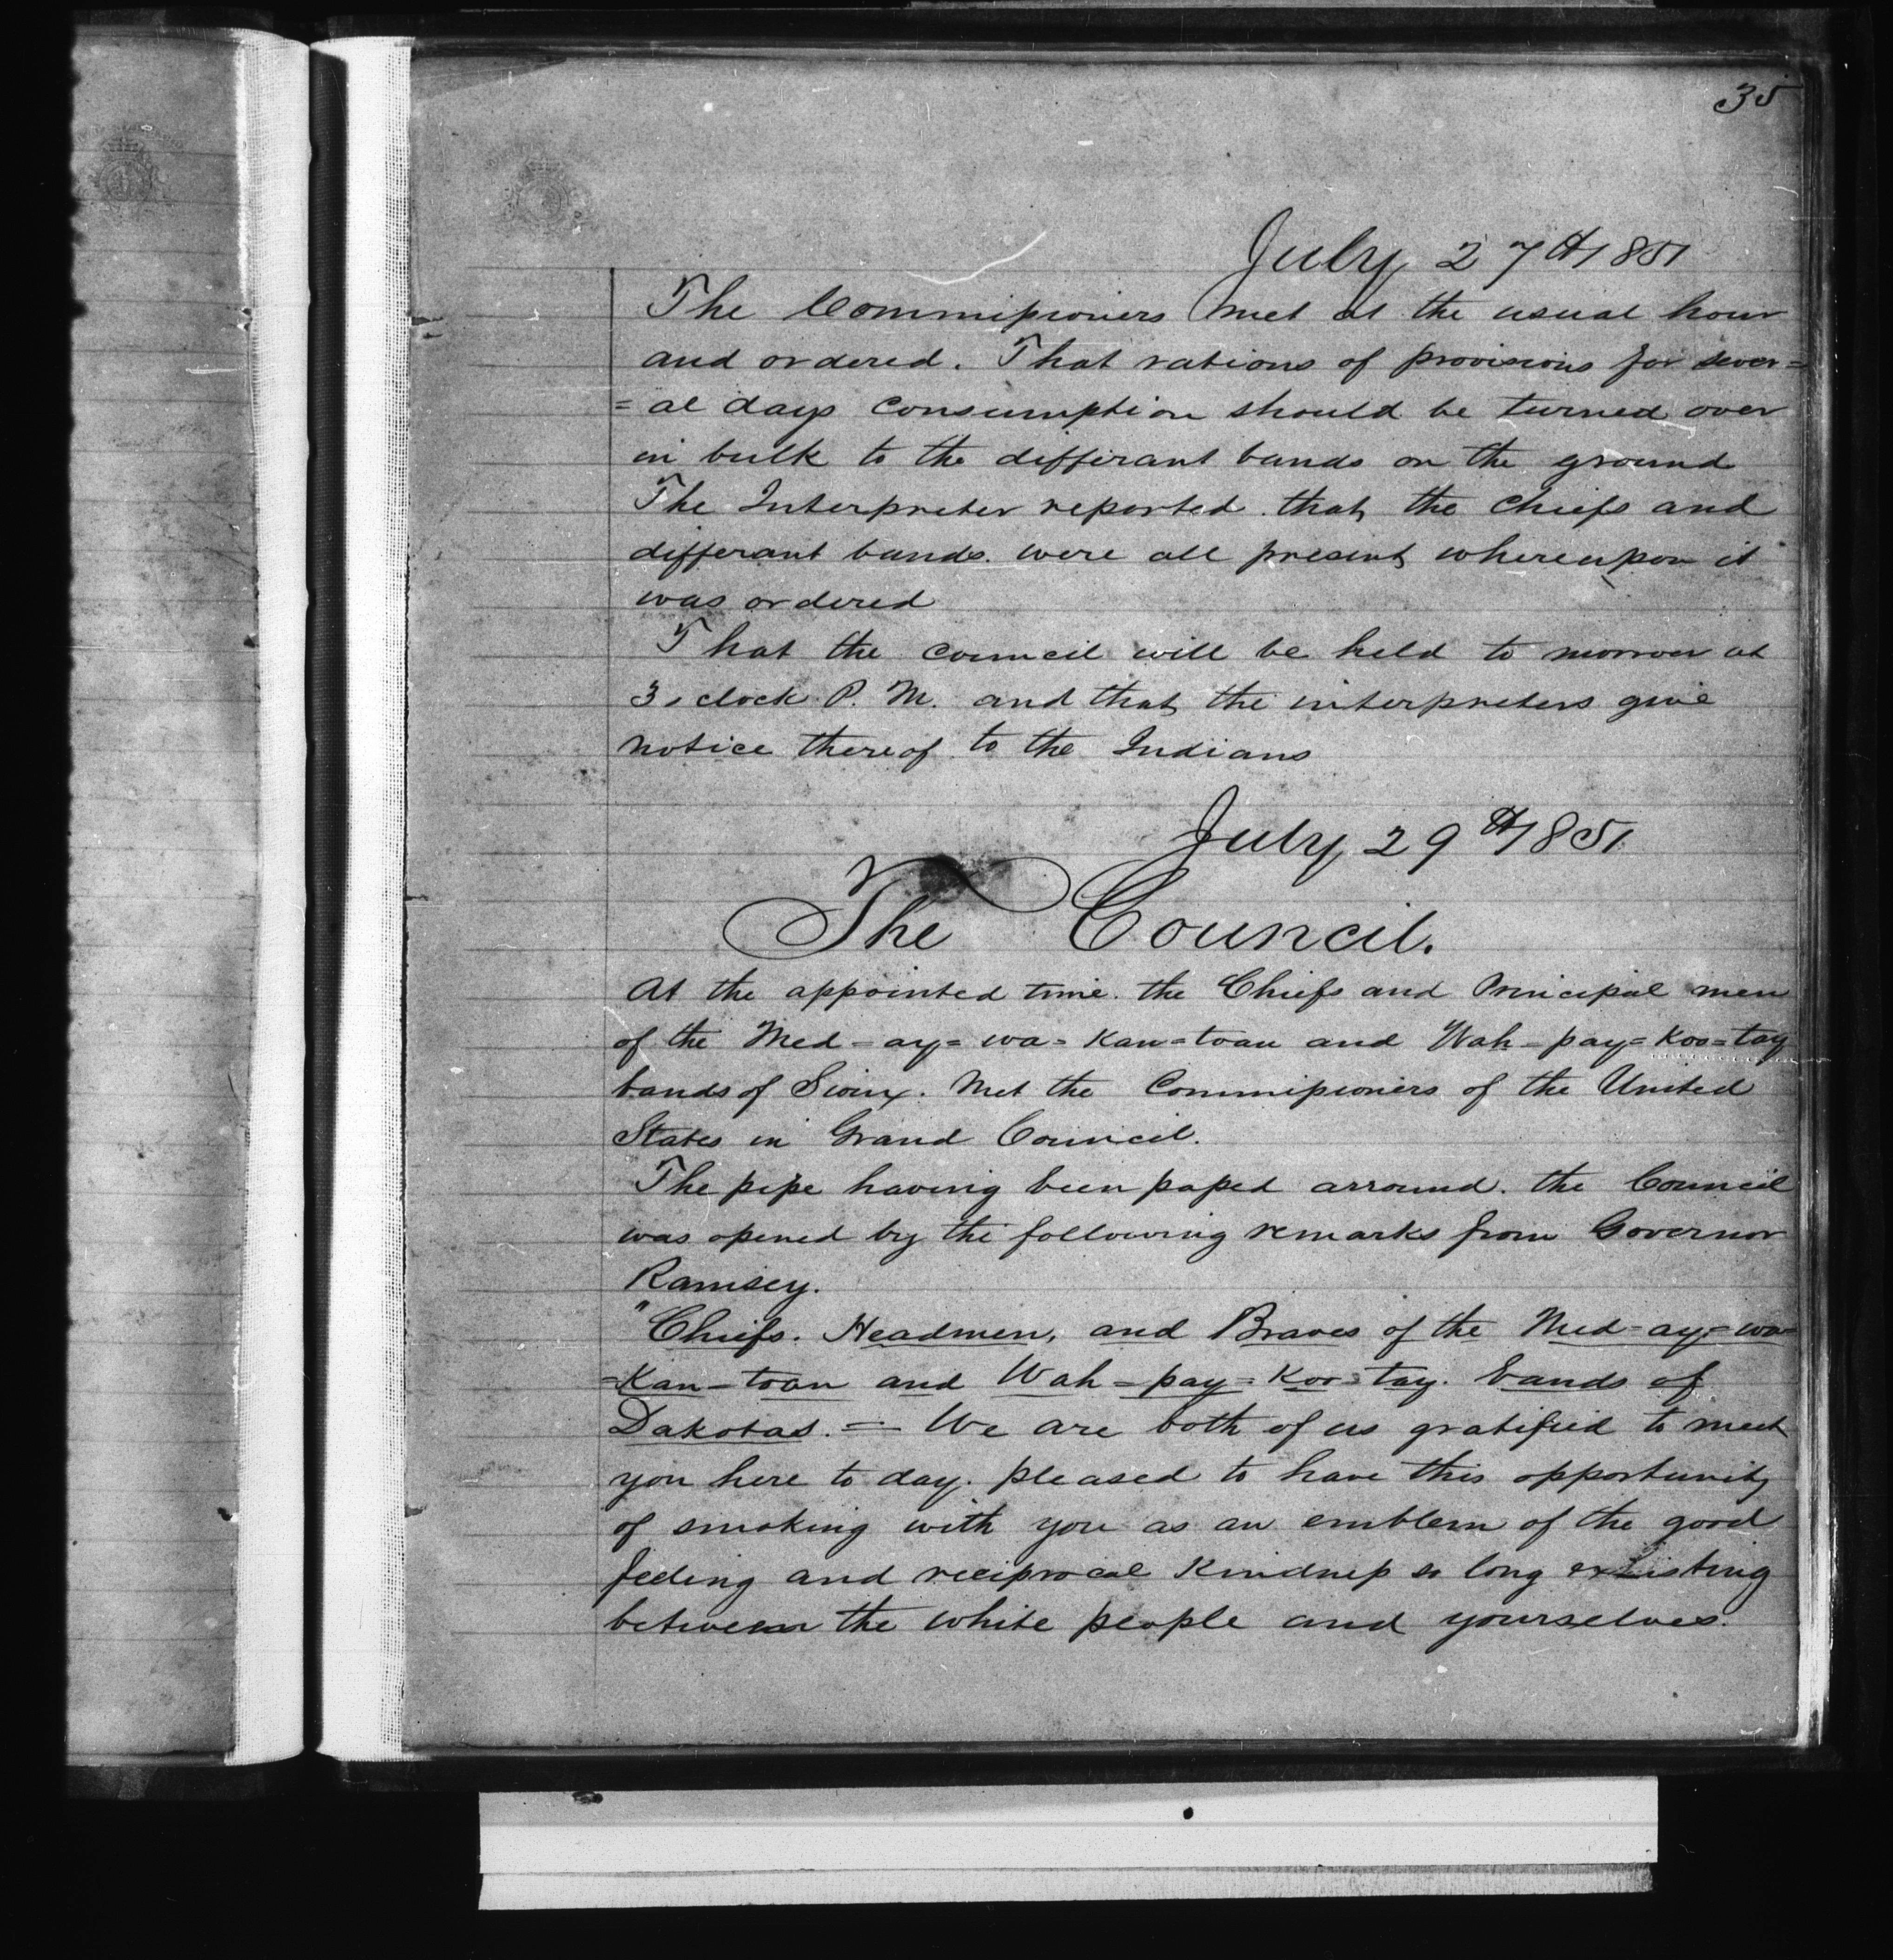 35
July 27th 1851
The Commissioners met at the usual hour
and ordered. That rations of provisions for sever=
=al days consumption should be turned over
in bulk to the differant bands on the ground
The Interpreter reported that the Chiefs and
differant bands were all present whereupon it
was ordered
That the council will be held to morrow at
3 o clock P. M. and that the interpreters give
notice thereof to the Indians
July 29th 1851
The Council.
At the appointed time. the Chiefs and Principal men
of the Med=ay=wa=kan=toan and Wah=pay=koo=tay
bands of Sioux. Met the Commissioners of the United
States in Grand Council.
The pipe having been passed arround. the Council
was opened by the following remarks from Governor
Ramsey.
"Chiefs. Headmen, and Braves of the Med=ay=wa=
=Kan=toan and Wah=pay=Koo=tay. bands of
Dakotas. — We are both of us gratified to meet
you here to day. pleased to have this opportunity
of smoking with you as an emblem of the good
feeling and reciprocal Kindness so long existing
between the white people and yourselves.